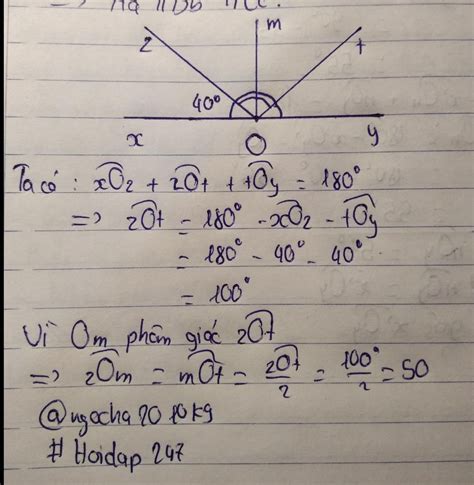 m
z
t
40°
x
O
y
Ta có : xOz + zOt + tOy = 180°
=> zOt = 180° - xOz - tOy
= 180° - 40° - 40°
= 100°
Vì Om phân giác zOt
=> zOm = mOt = zOt/2 = 100°/2 = 50
@ngocha2010kg
# Hoidap 247